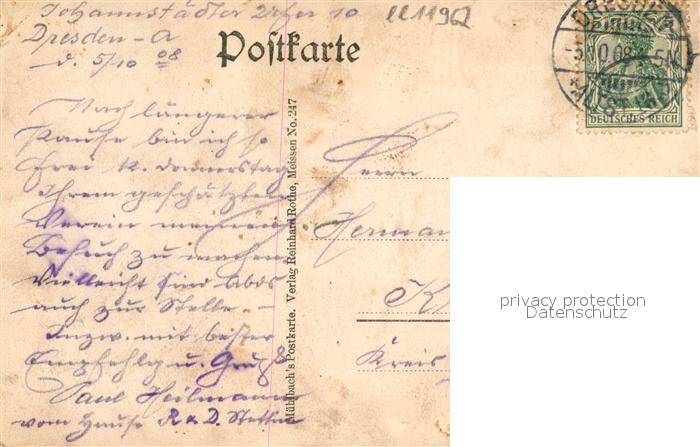 Johannstädter Ufer 10
Dresden-A
d. 5/10 08
ll11962
Postkarte
DEUTSCHES REICH
Nach längerer
Pause bin ich so
frei Donnerstag
Ihrem geschätzten
Verein meinen
Besuch zu machen
Vielleicht sind
auch zur Stelle. –
Inzw. mit bester
Empfehlg u. Gruß
Paul Heilmann
vom Hause R & D. Stettin
Mühlbach's Postkarte. Verlag Reinhard Rothe, Meissen No. 247
Herrn
Herman
K
Kreis
privacy protection
Datenschutz